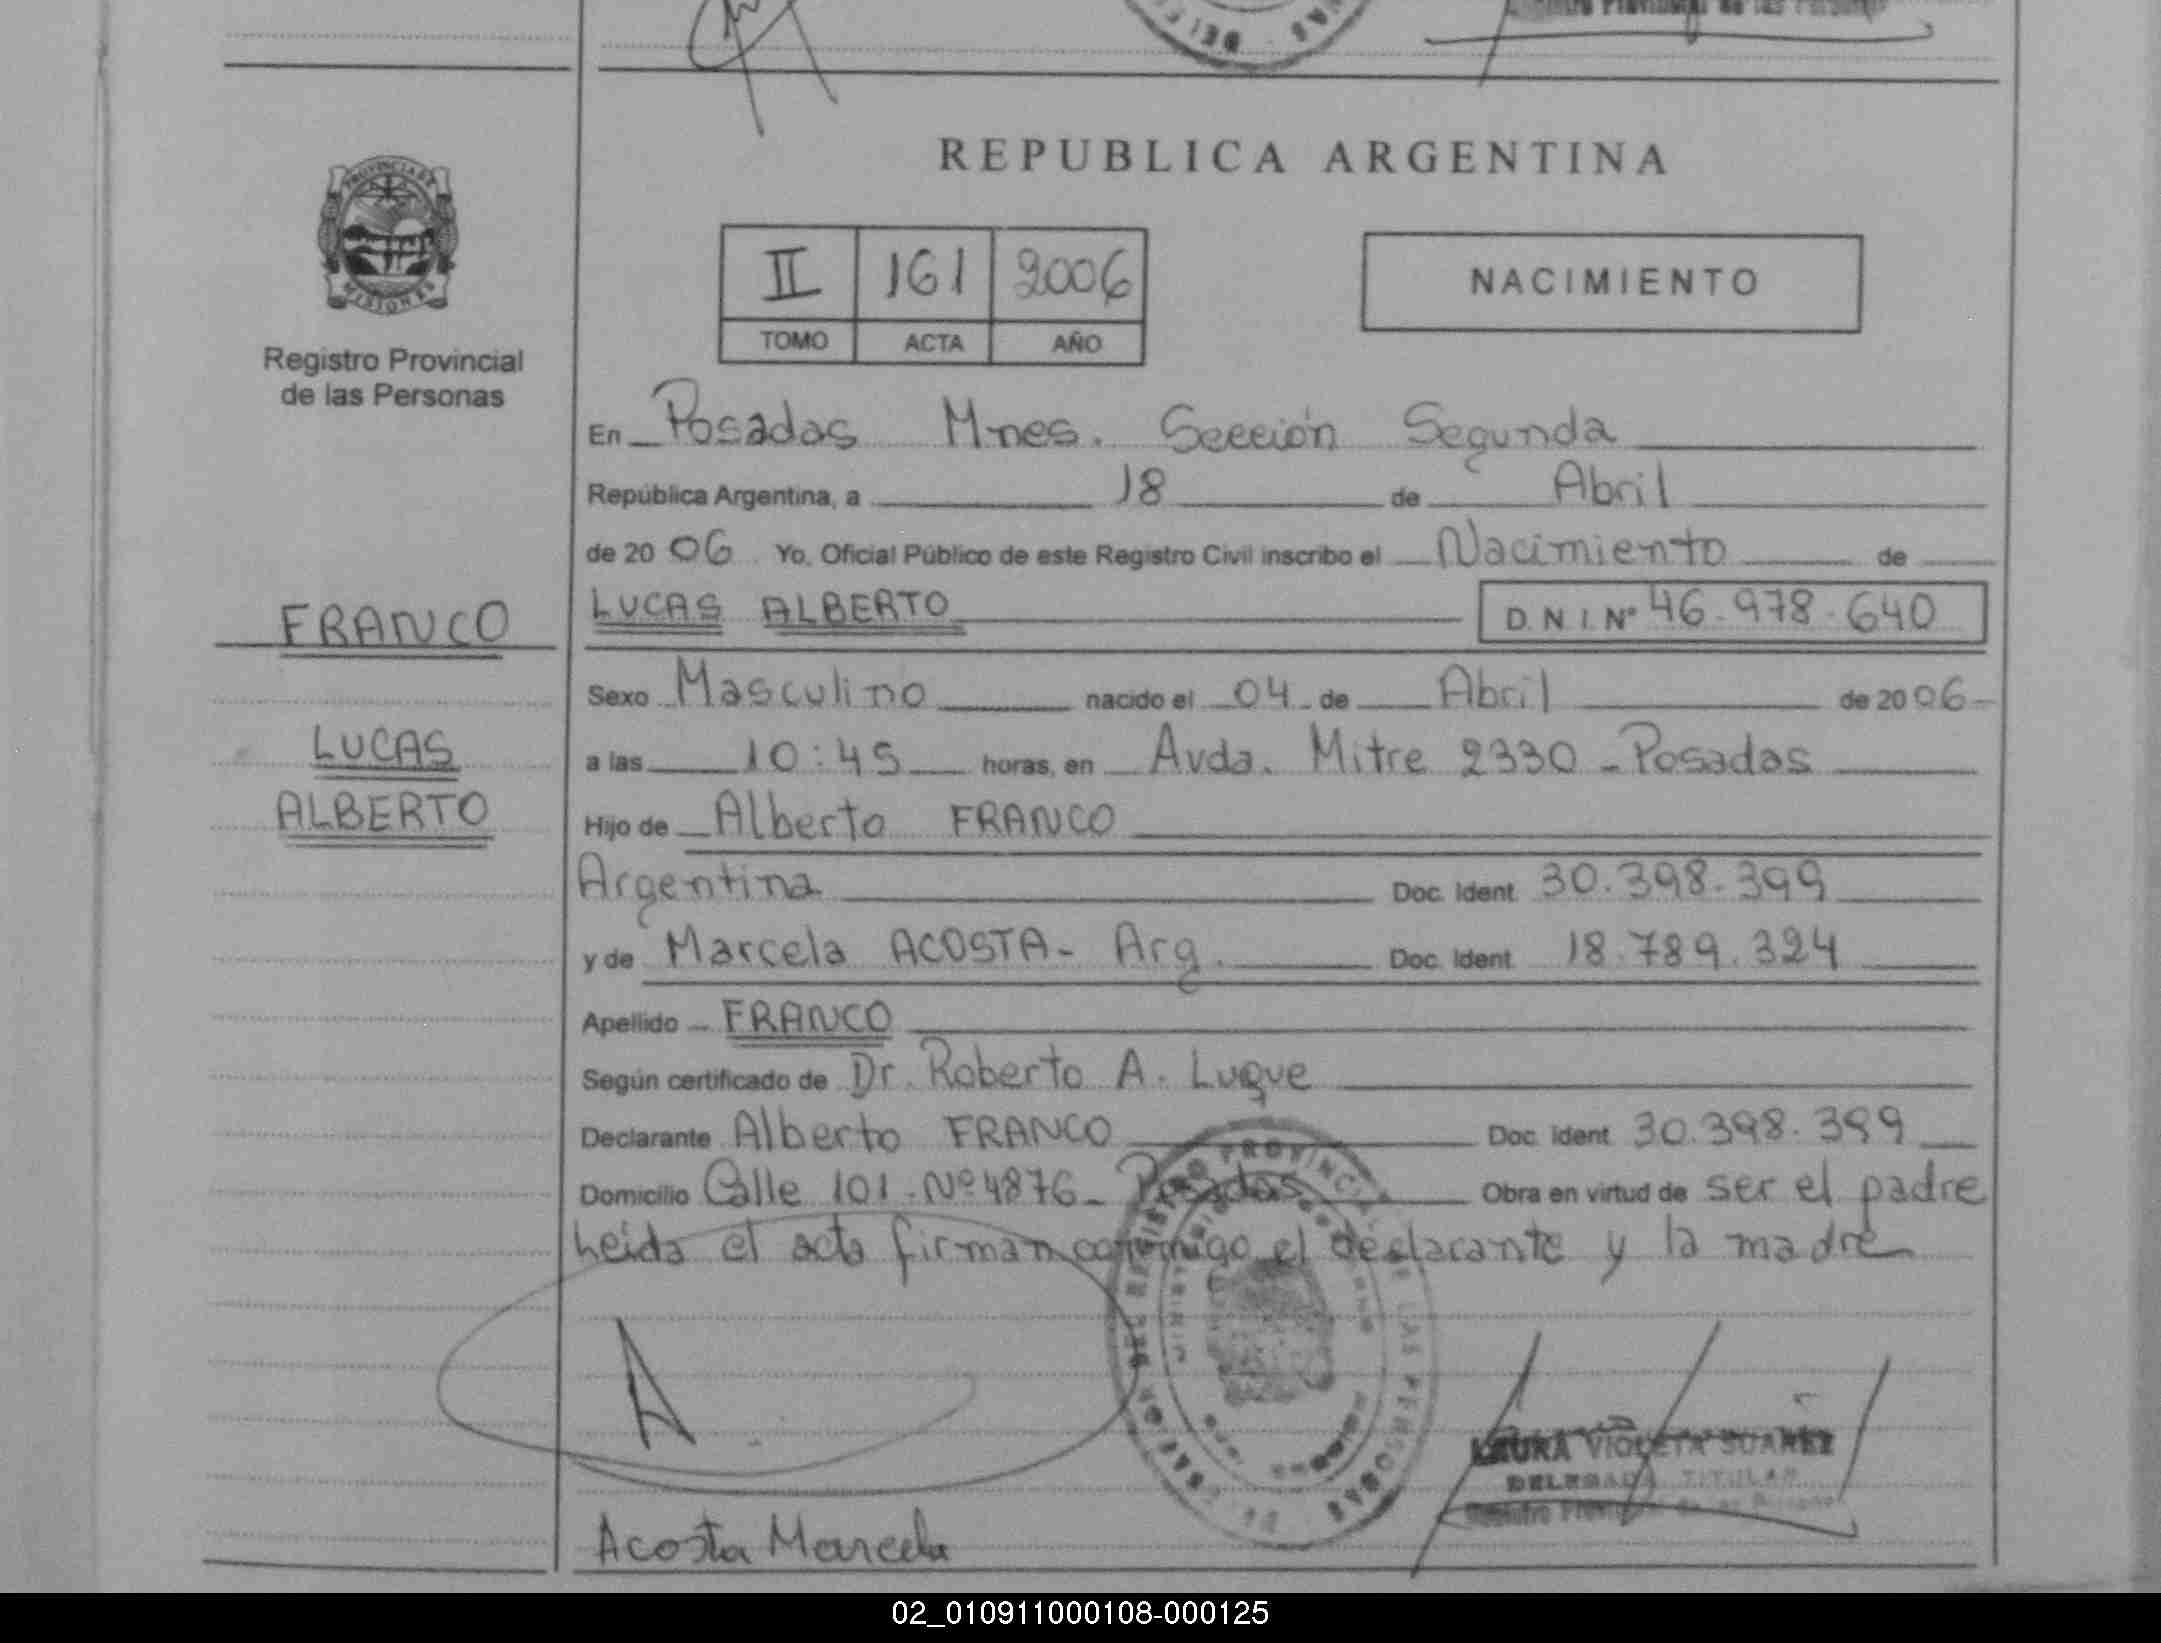 REPUBLICA ARGENTINA
PROVINCIA DE
MISIONES
Registro Provincial
de las Personas
II 161 2006
TOMO ACTA AÑO
NACIMIENTO
En Posadas Mnes. Sección Segunda
República Argentina, a 18 de Abril
de 20 06 Yo, Oficial Público de este Registro Civil inscribo el Nacimiento de
FRANCO
LUCAS ALBERTO D.N.I. Nº 46.978.640
Sexo Masculino nacido el 04 de Abril de 20 06
LUCAS
ALBERTO
a las 10:45 horas, en Avda. Mitre 2330 - Posadas
Hijo de Alberto FRANCO
Argentina Doc. Ident. 30.398.399
y de Marcela ACOSTA - Arg. Doc. Ident. 18.789.324
Apellido FRANCO
Según certificado de Dr. Roberto A. Luque
Declarante Alberto FRANCO Doc. Ident. 30.398.399
Domicilio Calle 101 - Nº 4876 - Posadas Obra en virtud de ser el padre
Leida el acta firman conmigo el declarante y la madre
REGISTRO PROVINCIAL DE LAS PERSONAS
LAURA VIOLETA SUAREZ
DELEGADA TITULAR
Registro Provincial de las Personas
Acosta Marcela
02_010911000108-000125